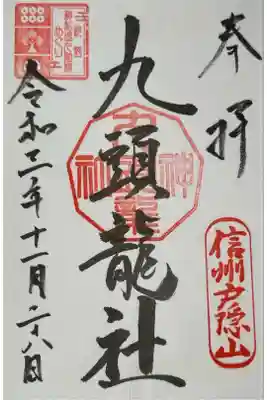 奉拝
信州戸隠山
九頭龍社
令和二年十一月二十八日